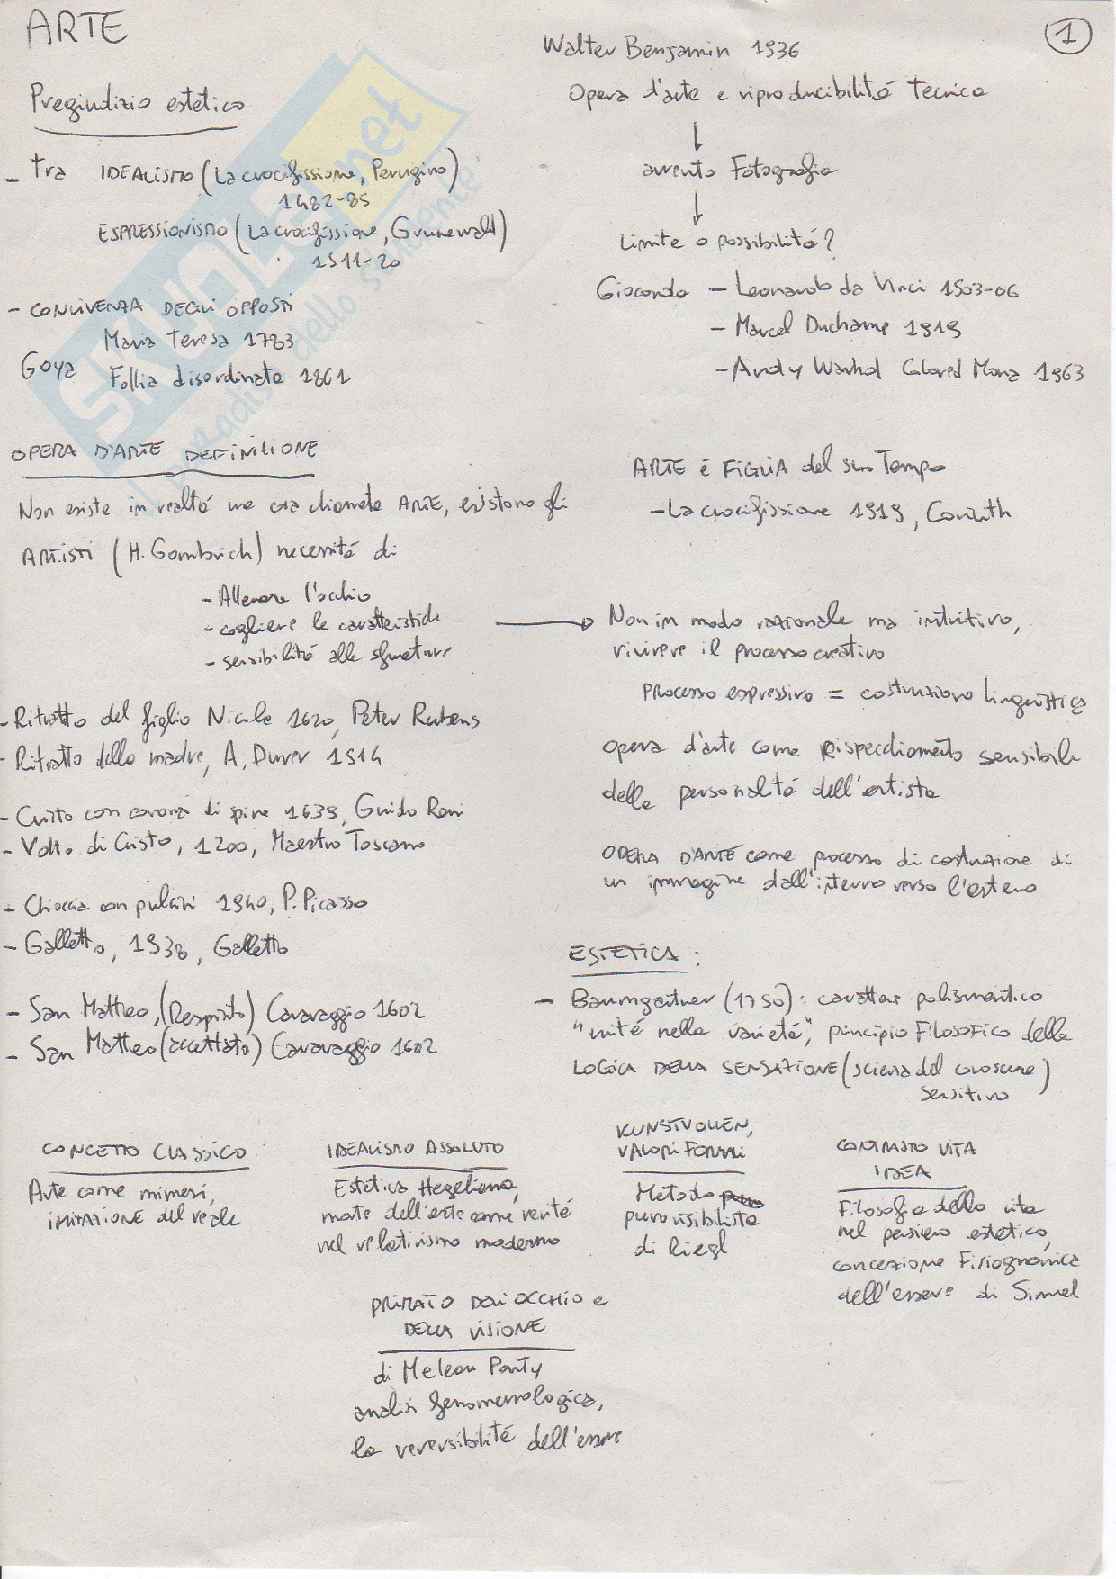 ARTE
1
Pregiudizio estetico
- tra IDEALISMO (La crocifissione, Perugino)
1482-85
ESPRESSIONISMO (La crocifissione, Grunewald)
1511-20
- CONVIVENZA DEGLI OPPOSTI
Maria Teresa 1783
Goya
Follia disordinata 1861
OPERA D'ARTE DEFINIZIONE
Non esiste in realtà una cosa chiamata ARTE, esistono gli
ARTISTI (H. Gombrich) necessità di
- Allenare l'occhio
- cogliere le caratteristiche
- sensibilità alle sfumature
- Ritratto del figlio Nicola 1620, Peter Rubens
- Ritratto della madre, A. Durer 1514
- Cristo con corona di spine 1639, Guido Reni
- Volto di Cristo, 1200, Maestro Toscano
- Chioccia con pulcini 1940, P. Picasso
- Galletto, 1938, Galletto
- San Matteo, (Respinto) Caravaggio 1602
- San Matteo (accettato) Caravaggio 1602
Walter Benjamin 1936
Opera d'arte e riproducibilità Tecnica
avvento Fotografia
Limite o possibilità?
Gioconda - Leonardo da Vinci 1503-06
- Marcel Duchamp 1919
- Andy Warhol Colored Mona 1963
ARTE è FIGLIA del suo Tempo
- La crocifissione 1919, Corinth
Non in modo razionale ma intuitivo,
rivivere il processo creativo
processo espressivo = costruzione linguistica
opera d'arte come Rispecchiamento sensibile
della personalità dell'artista
OPERA D'ARTE come processo di costruzione di
un immagine dall'interno verso l'esterno
ESTETICA:
- Baumgartner (1750): carattere polisemantico
"unità nella varietà", principio Filosofico della
LOGICA DELLA SENSAZIONE (scienza del conoscere)
sensitivo
CONCETTO CLASSICO
Arte come mimesi,
IMITAZIONE del reale
IDEALISMO ASSOLUTO
Estetica Hegeliana,
morte dell'arte come verità
nel relativismo moderno
KUNSTVOLLEN,
VALORI FORMALI
Metodo
purovisibilista
di Riegl
CONTRASTO VITA
IDEA
Filosofia della vita
nel pensiero estetico,
concezione Fisiognomica
dell'essere di Simmel
PRIMATO DELL'OCCHIO e
DELLA VISIONE
di Merleau Ponty
analisi fenomenologica,
la reversibilità dell'essere